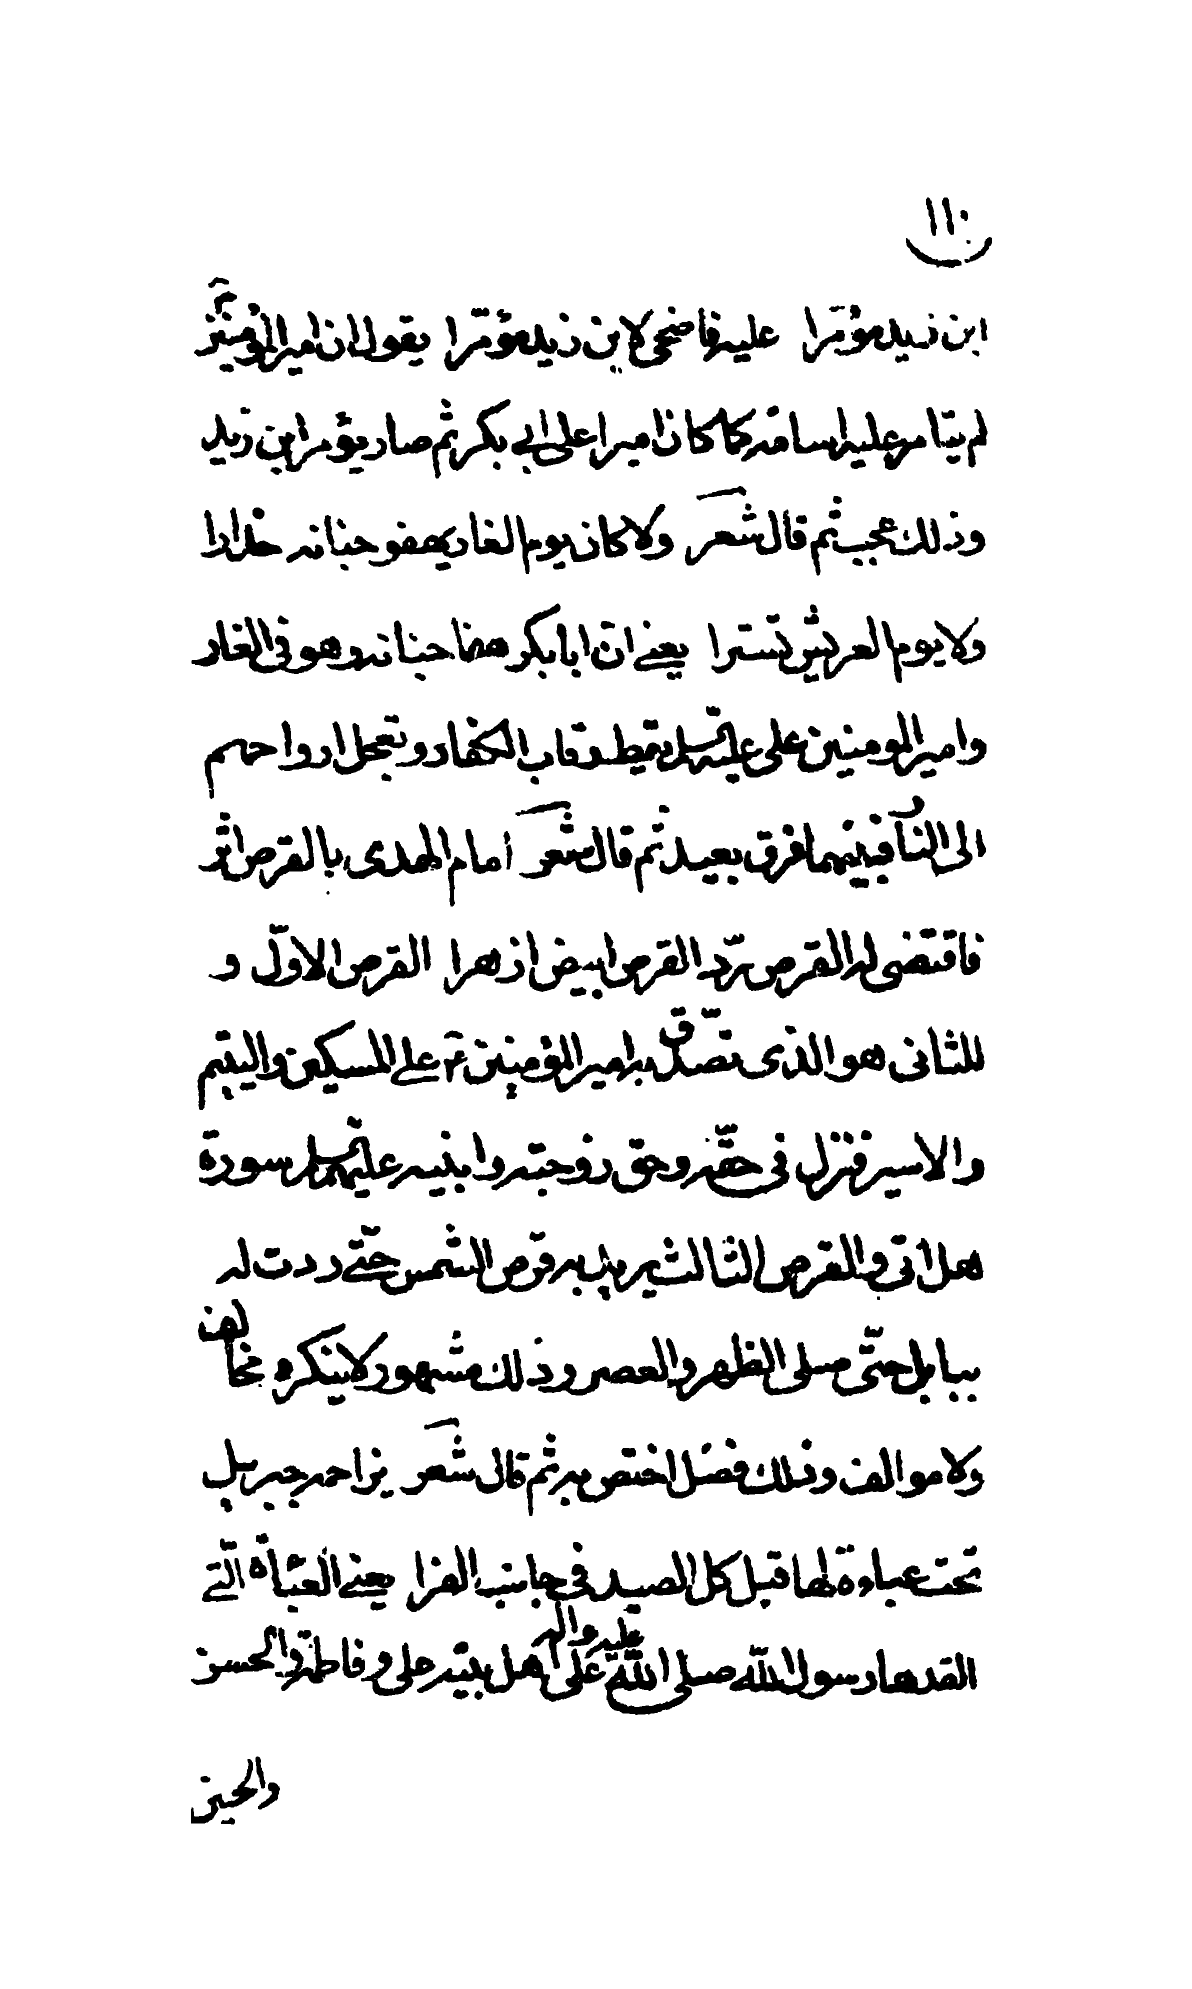 ١١٠
ابن زيد مؤمرا عليه فاضحى لابن زيد مؤمرا يقول ان امير المؤمنين ع
لم يتامر عليه اسامة كما كان اميرا على ابي بكر ثم صار يؤمر ابن زيد
وذلك عجيب ثم قال شعر ولا كان يوم الغار يهفو جنانه حذارا
ولا يوم العريش تسترا يعني ان ابا بكر هفا جنانه وهو في الغار
وامير المومنين علي عليه السلم يقط رقاب الكفار ويعجل ارواحهم
الى النار فبينهما فرق بعيد ثم قال شعر امام الهدى بالقرص اثر
فاقتضى له القرص ردّ القرص ابيض ازهرا القرص الاوّل و
للثاني هو الذى تصدّق به امير المؤمنين ع على المسكين واليتيم
والاسير فنزل في حقّه وحق زوجته وابنيه عليهم السلم سورة
هل اتى والقرص الثالث يريد به قرص الشمس حتّى ردت له
ببابل حتّى صلى الظهر والعصر وذلك مشهور لا ينكره مخالف
ولا موالف وذلك فضل اختص به ثم قال شعر يزاحمه جبريل
تحت عباءة لها قيل كل الصيد في جانب الفرا يعني العبأة الّتي
القدها رسول اللّه صلى اللّه عليه واله على اهل بيته علي وفاطمة والحسن
والحسين